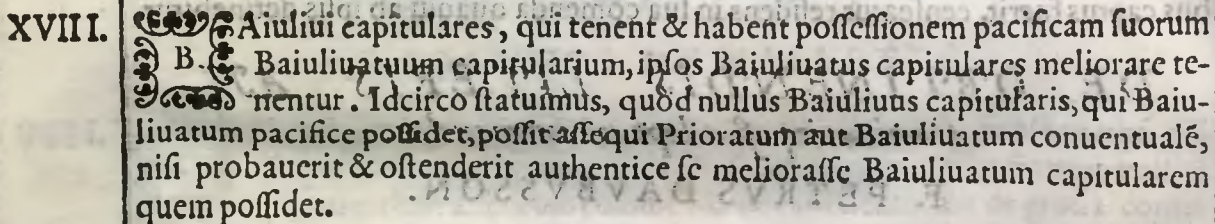 XVIII. B. Aiuliui capitulares, qui tenent & habent poſſeſſionem pacificam ſuorum
Baiuliuatuum capitularium, ipſos Baiuliuatus capitulares meliorare te-
nentur. Idcirco ſtatuimus, quòd nullus Baiuliuus capitularis, qui Baiu-
liuatum pacifice poſſidet, poſſit aſſequi Prioratum aut Baiuliuatum conuentualē,
niſi probauerit & oſtenderit authentice ſe melioraſſe Baiuliuatum capitularem
quem poſſidet.